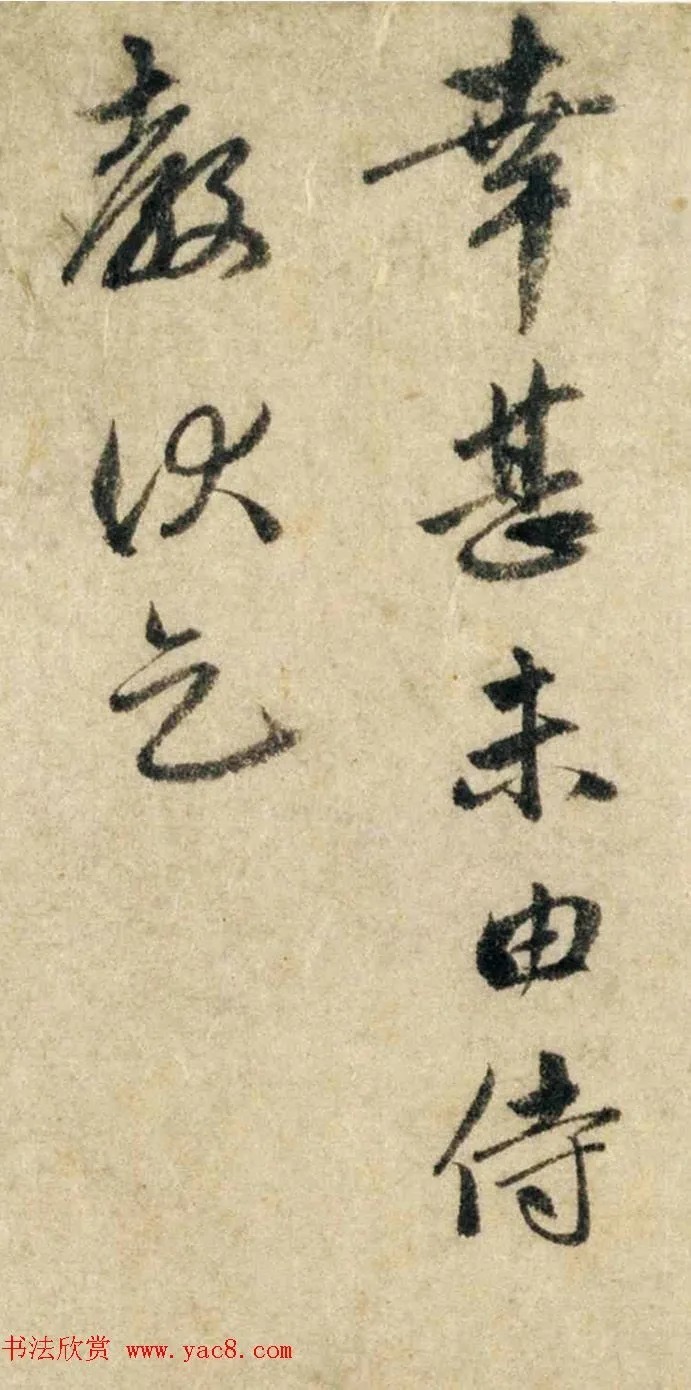 幸甚未由侍
教伏乞
书法欣赏 www.yac8.com